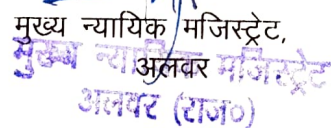 मुख्य न्यायिक मजिस्ट्रेट,
अलवर
मुख्य न्यायिक मजिस्ट्रेट
अलवर (राज०)